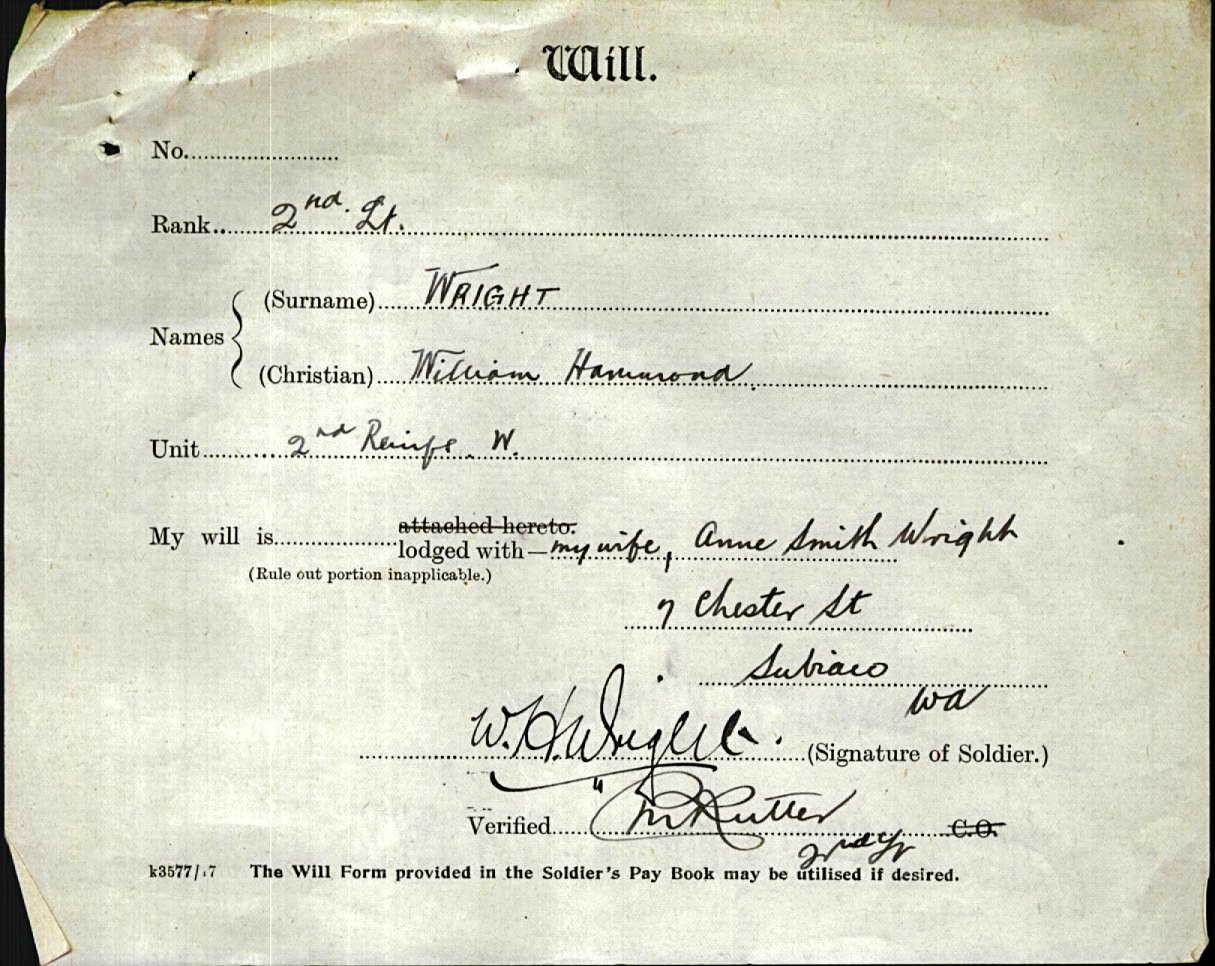 Will.
No.
Rank 2nd. Lt.
(Surname) WRIGHT
Names
(Christian) William Hammond
Unit 2nd Reinfs. W.
attached hereto.
My will is
lodged with—my wife, Anne Smith Wright
(Rule out portion inapplicable.)
7 Chester St
Subiaco
WA
W.H. Wright. (Signature of Soldier.)
Verified Rutter C.O.
k3577/17 The Will Form provided in the Soldier's Pay Book may be utilised if desired.